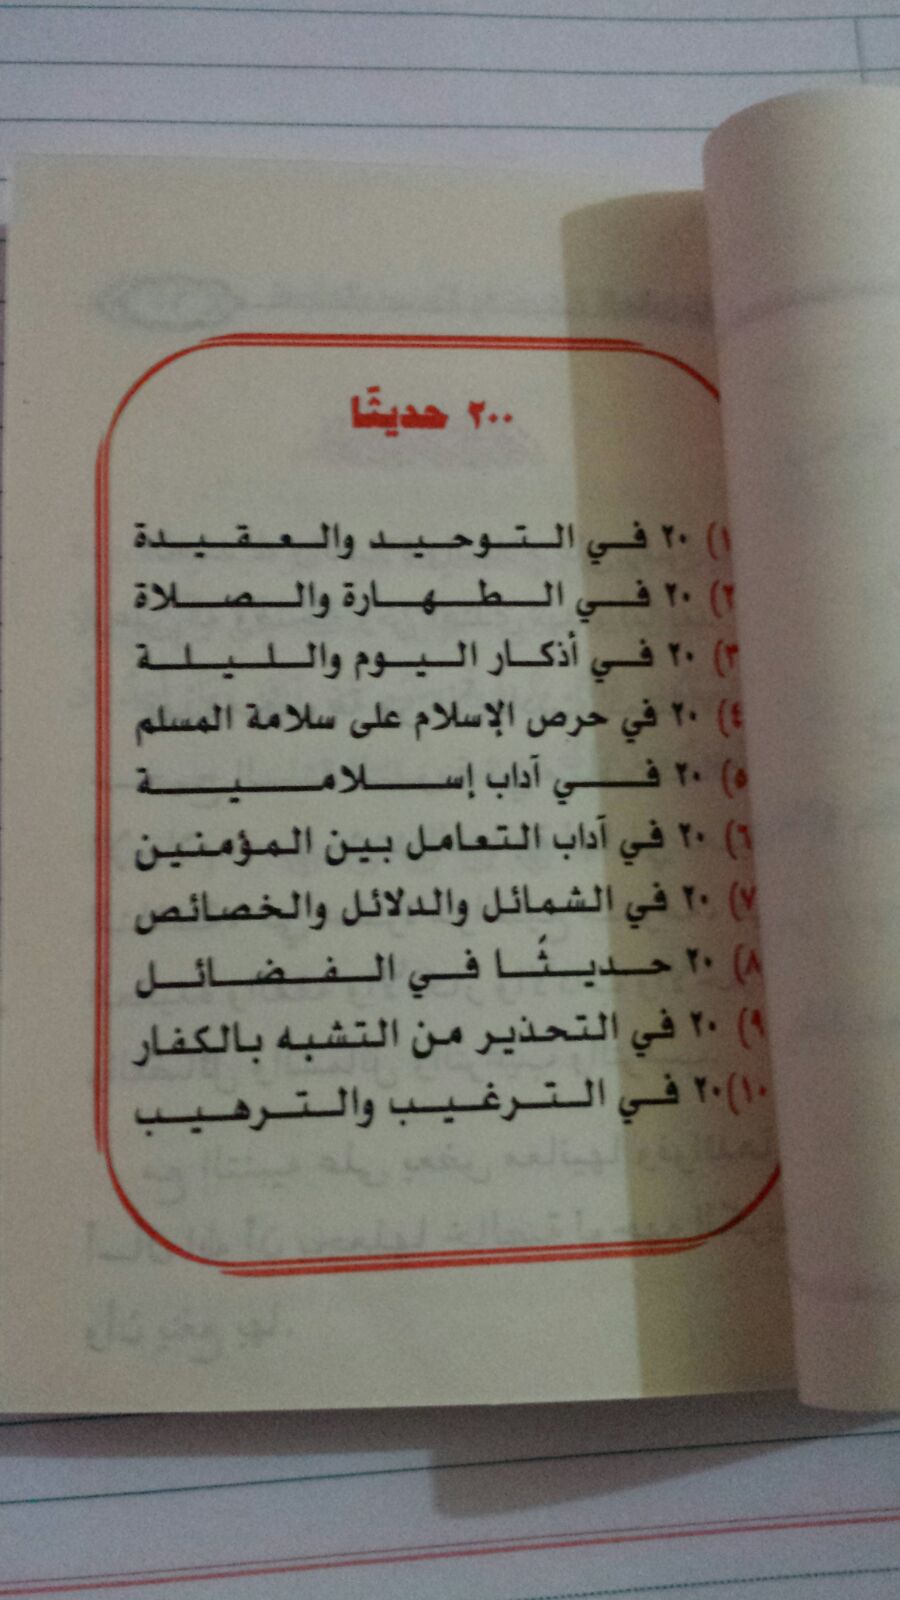 ٢٠٠ حديثًا
١) ٢٠ في التوحيد والعقيدة
٢) ٢٠ في الطهارة والصلاة
٣) ٢٠ في أذكار اليوم والليلة
٤) ٢٠ في حرص الإسلام على سلامة المسلم
٥) ٢٠ في آداب إسلامية
٦) ٢٠ في آداب التعامل بين المؤمنين
٧) ٢٠ في الشمائل والدلائل والخصائص
٨) ٢٠ حديثًا في الفضائل
٩) ٢٠ في التحذير من التشبه بالكفار
١٠) ٢٠ في الترغيب والترهيب